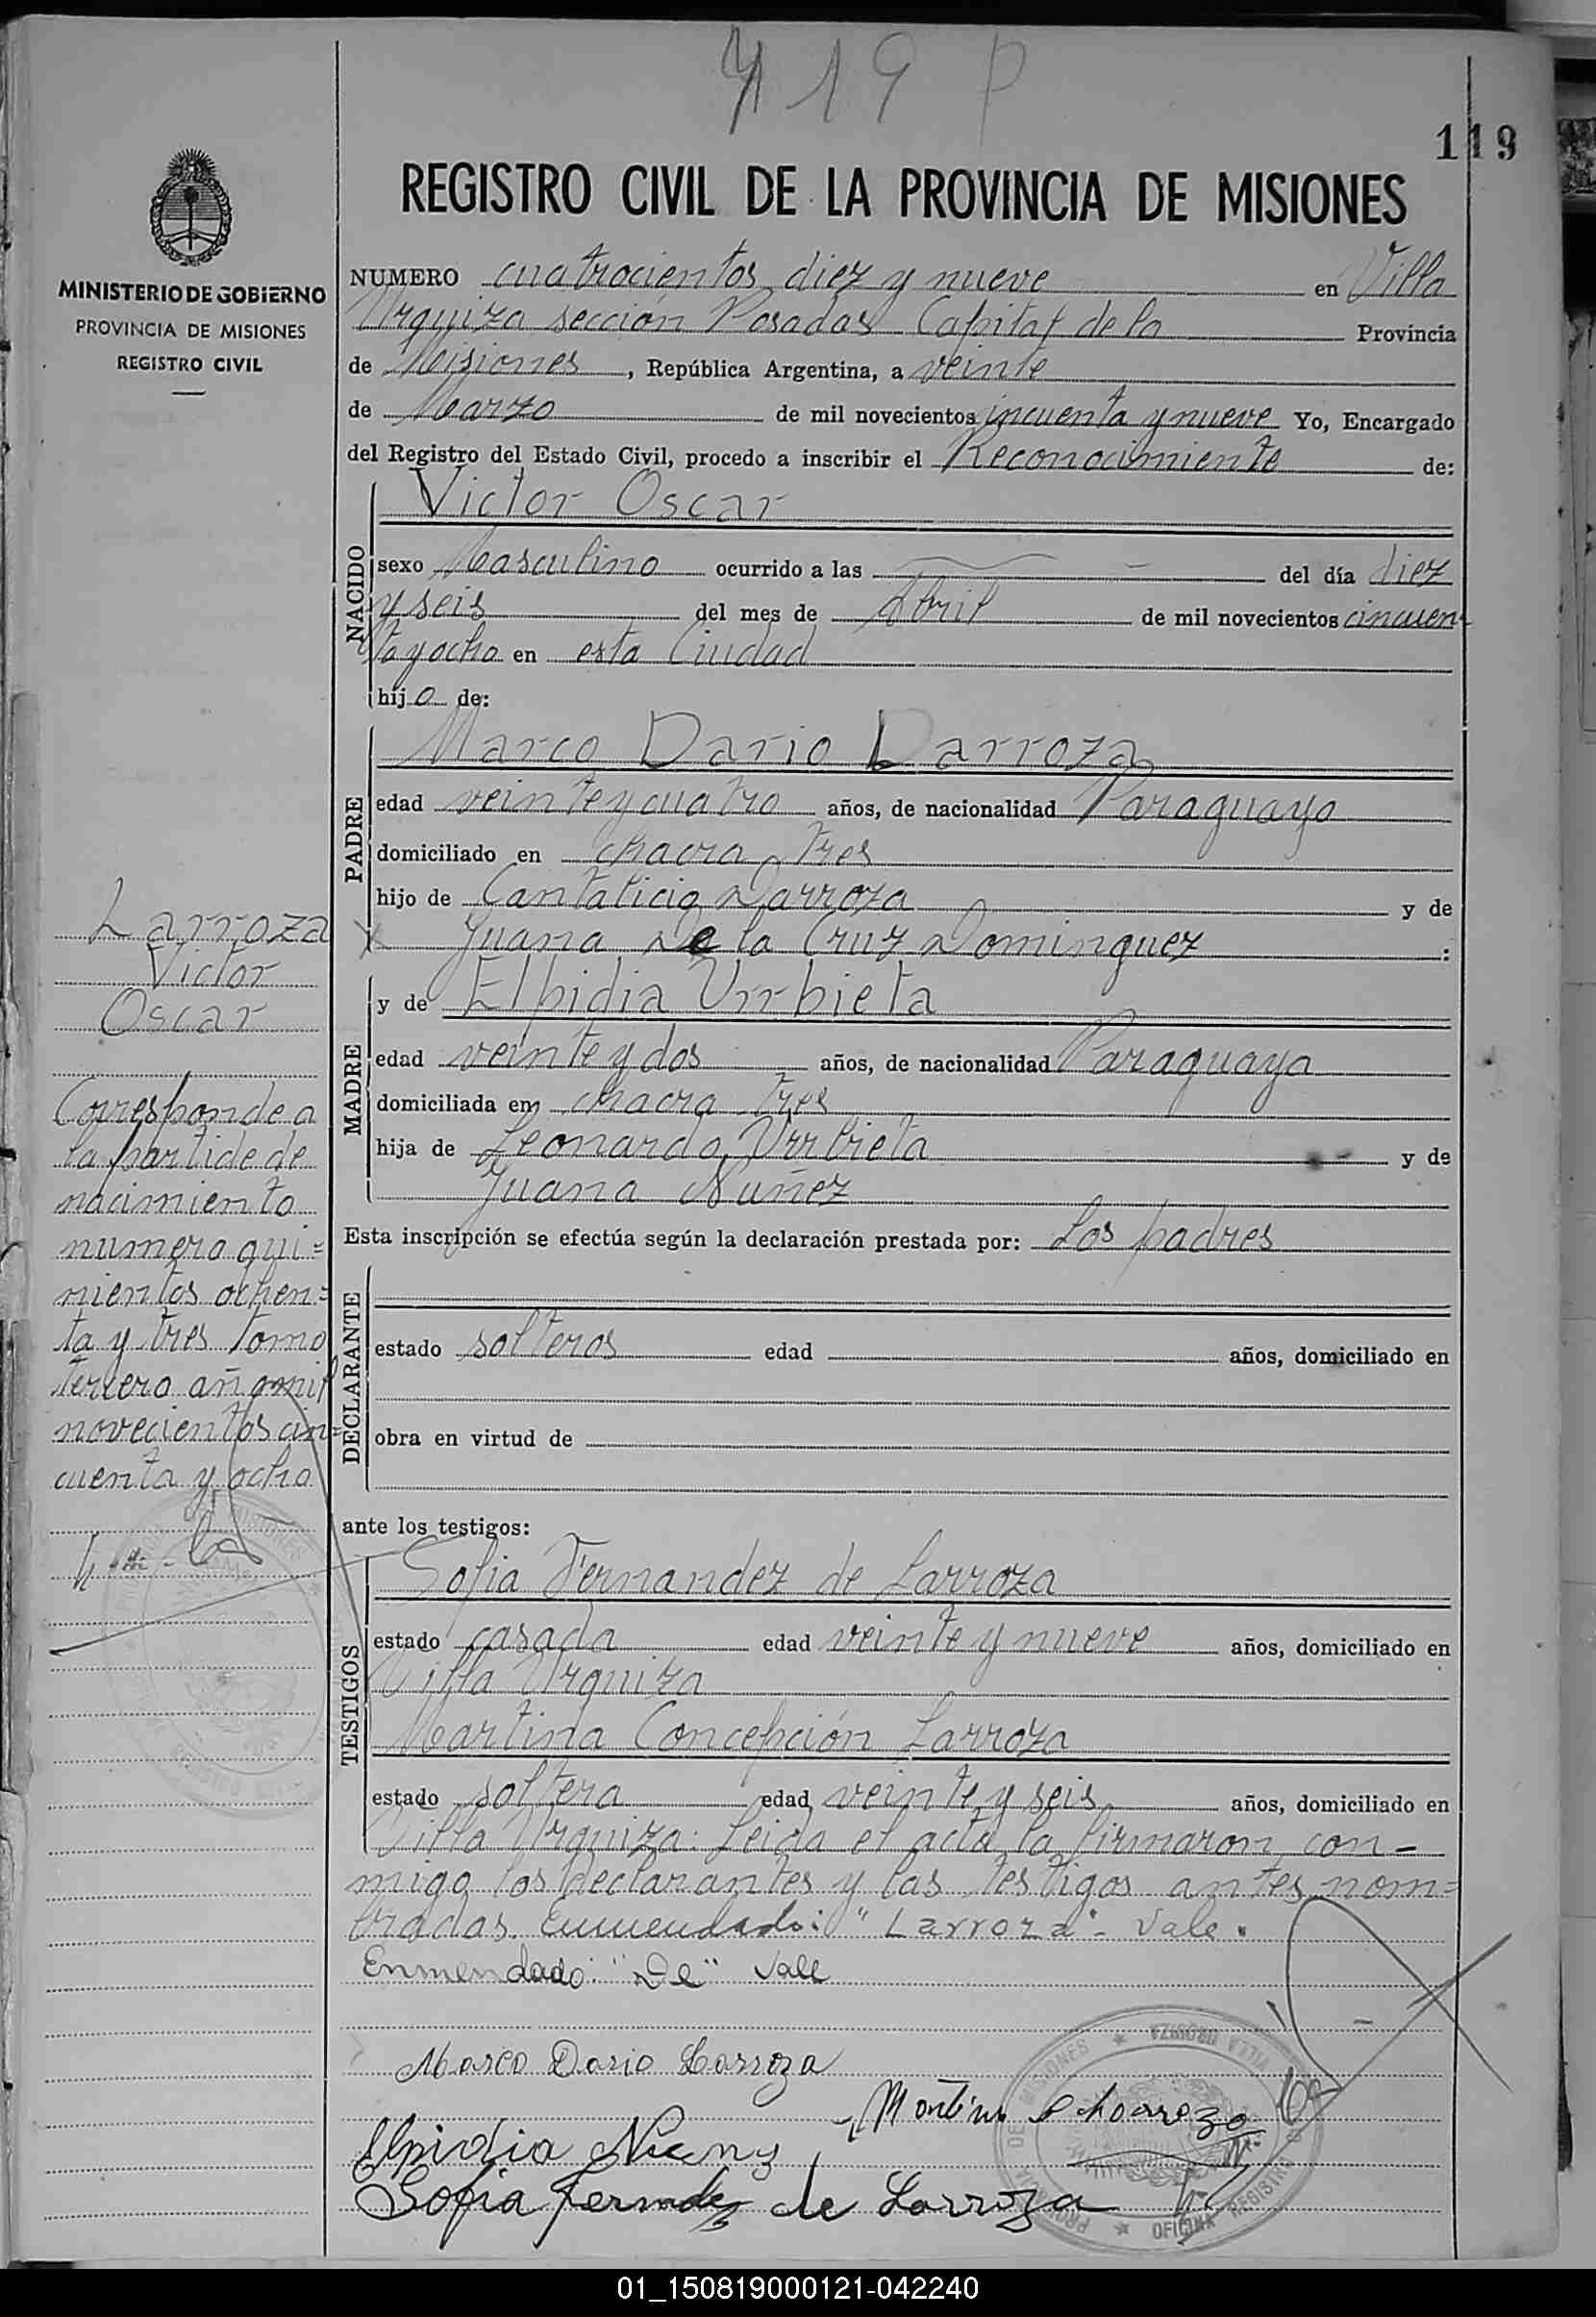 419 P
119
REGISTRO CIVIL DE LA PROVINCIA DE MISIONES
MINISTERIO DE GOBIERNO
PROVINCIA DE MISIONES
REGISTRO CIVIL
NUMERO cuatrocientos diez y nueve en Villa
Urquiza sección Posadas Capital de la Provincia
de Misiones, República Argentina, a veinte
de Marzo de mil novecientos incuenta y nueve Yo, Encargado
del Registro del Estado Civil, procedo a inscribir el Reconocimiento de:
NACIDO
Victor Oscar
sexo Masculino ocurrido a las — del día diez
y seis del mes de Abril de mil novecientos cincuen-
ta y ocho en esta Ciudad
hijo de:
PADRE
Marco Dario Larroza
edad veinte y cuatro años, de nacionalidad Paraguayo
domiciliado en chacra tres
hijo de Cantalicio Larroza y de
X Juana De la Cruz Dominguez :
MADRE
y de Elpidia Urrbieta
edad veinte y dos años, de nacionalidad Paraguaya
domiciliada en chacra tres
hija de Leonardo Urrbieta y de
Juana Nuñez
Esta inscripción se efectúa según la declaración prestada por: Los padres
DECLARANTE
estado solteros edad años, domiciliado en
obra en virtud de
ante los testigos:
TESTIGOS
Sofia Fernandez de Larroza
estado casada edad veinte y nueve años, domiciliado en
Villa Urquiza
Martina Concepción Larroza
estado soltera edad veinte y seis años, domiciliado en
Villa Urquiza: Leida el acta la firmaron con-
migo los declarantes y las testigos antes nom=
bradas. Enmendado: "Larroza" - Vale.
Enmendado: "De" Vale
Marco Dario Larroza
Elpidia
Sofia Fernandez de Larroza
Larroza
Victor
Oscar
Corresponde a
la partide de
nacimiento
numero qui=
nientos ochen=
ta y tres tomo
tercero año mil
novecientos cin=
cuenta y ocho
VILLA URQUIZA
PROVINCIA DE MISIONES
OFICINA REGISTRO
01_150819000121-042240